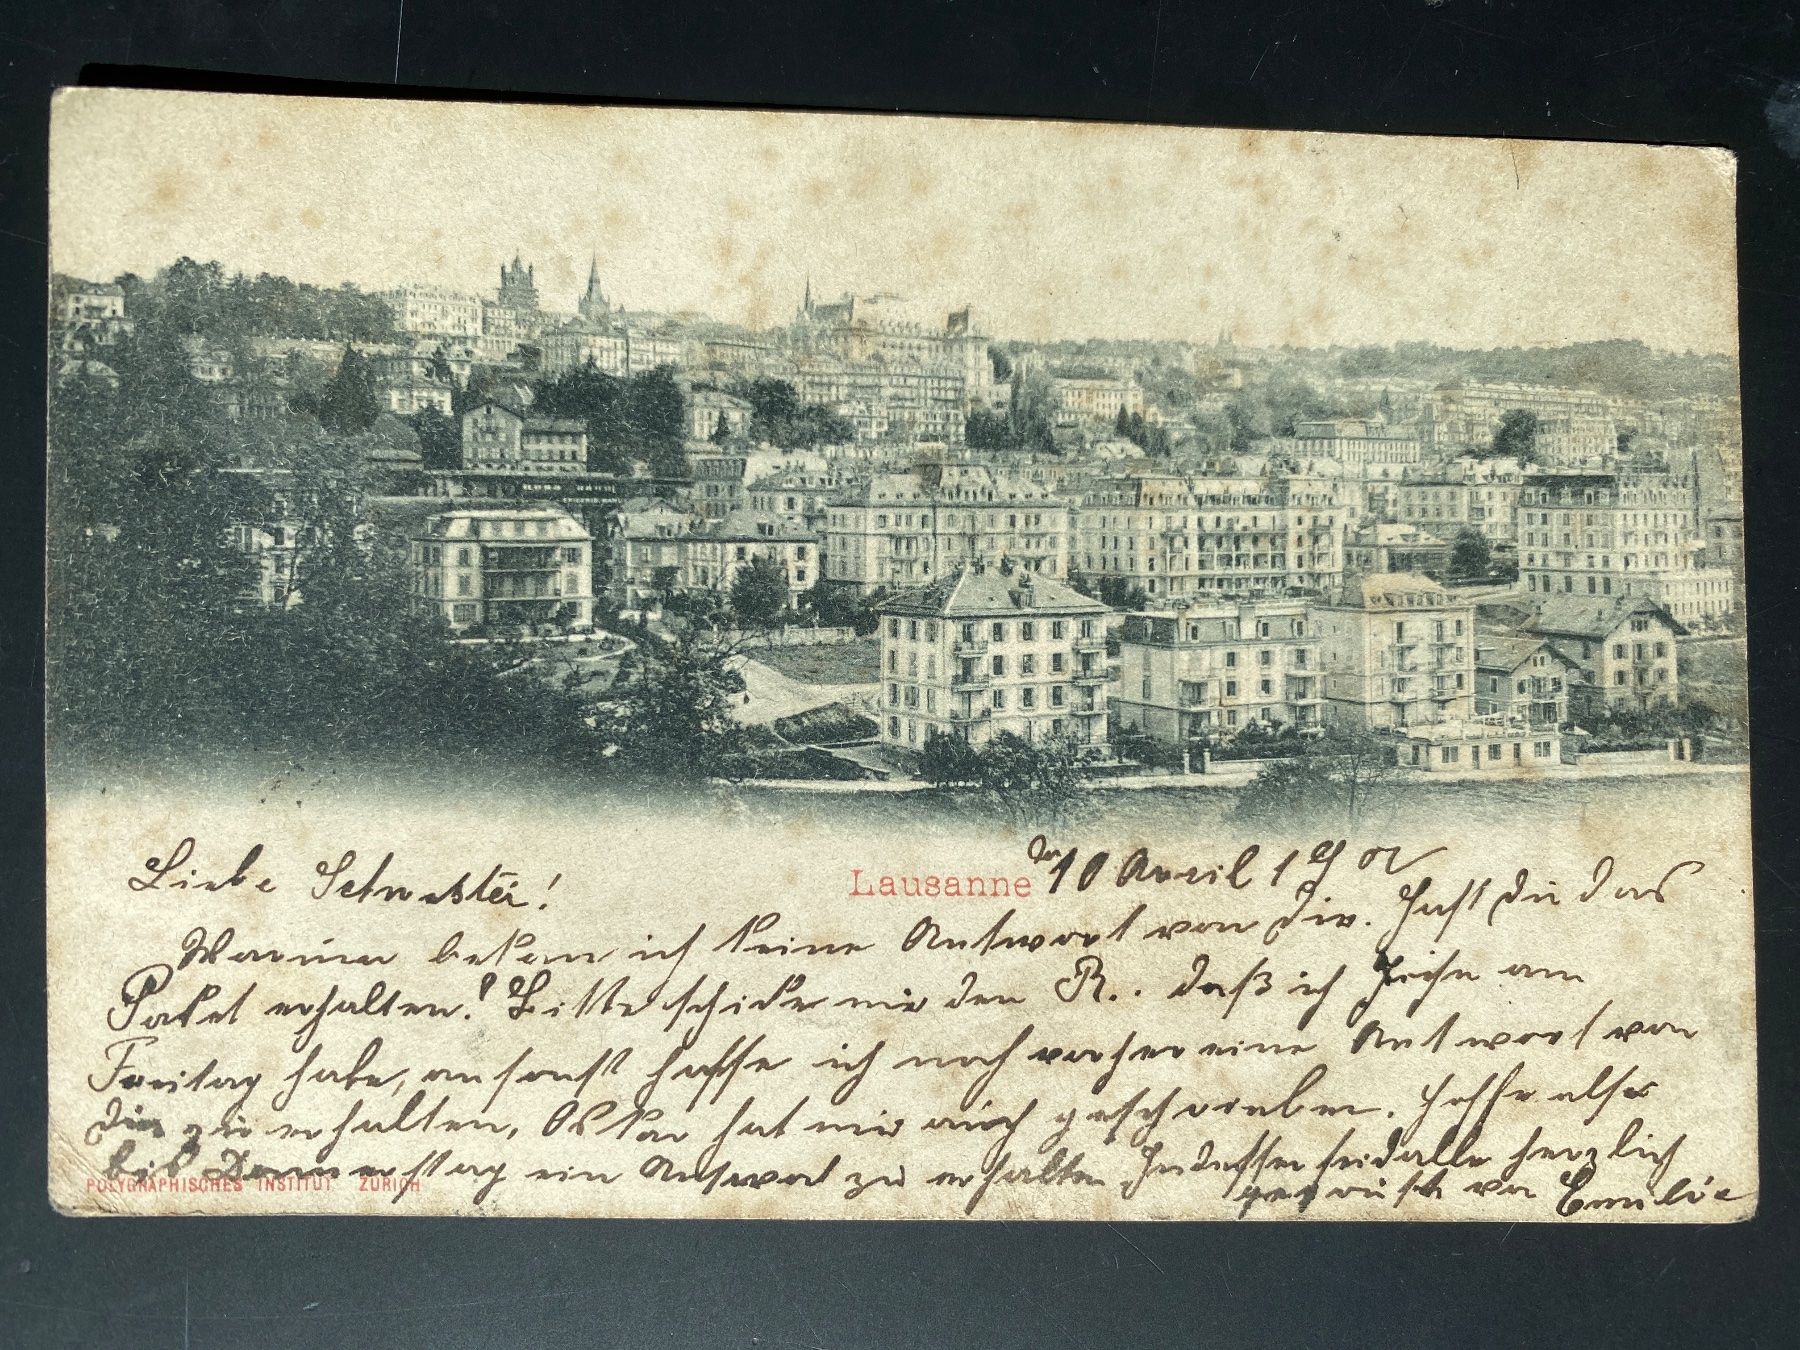 Liebe Schwester!
Lausanne den 10 April 1902
Warum bekam ich keine Antwort von Dir. Hast du das
Paket erhalten? Bitte schicke mir den R.. daß ich ihn am
Freitag habe, ansonst hoffe ich noch vorher eine Antwort von
Dir zu erhalten, Oskar hat mir auch geschrieben. Hoffe also
bis Donnerstag ein Antwort zu erhalten Indessen seid alle herzlich
gegrüßt von Emilie
POLYGRAPHISCHES INSTITUT ZÜRICH